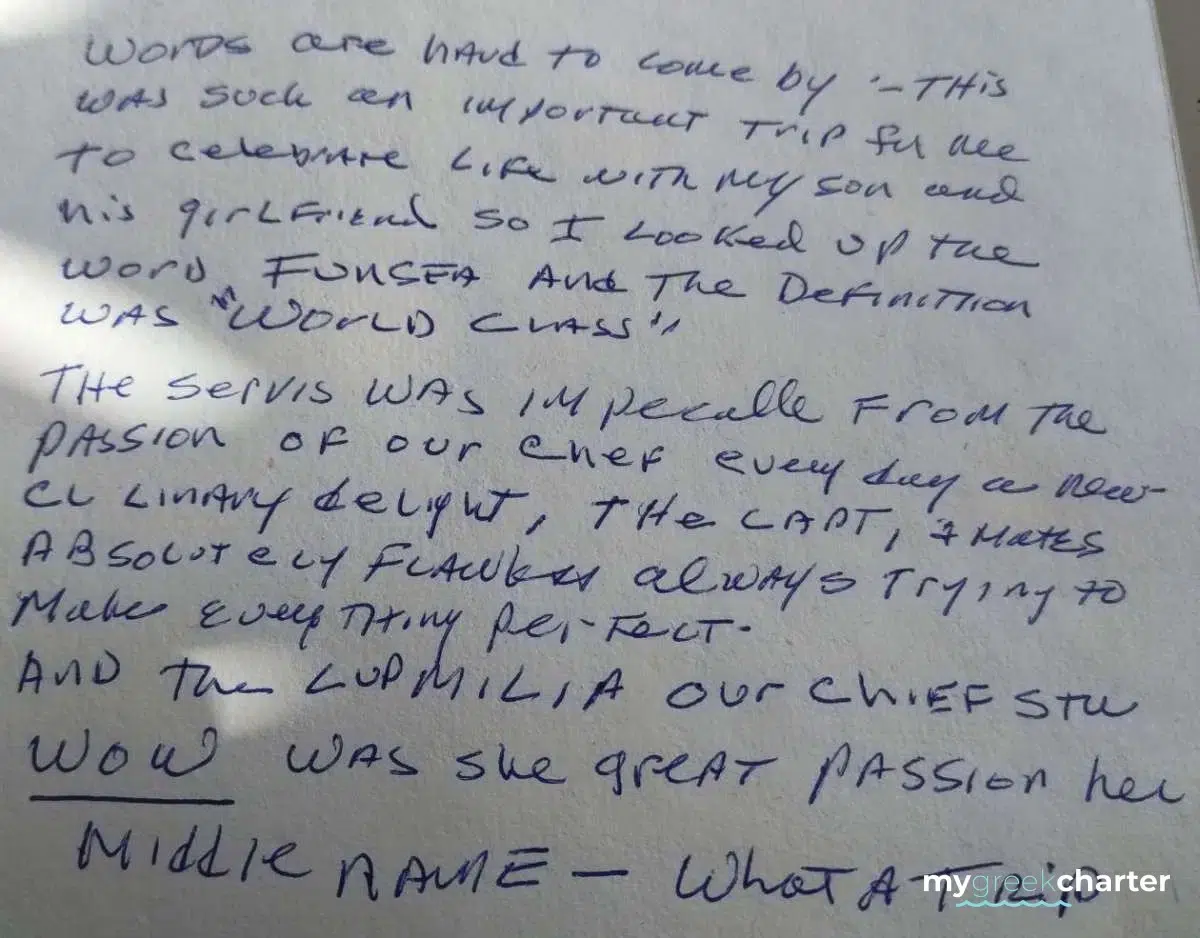 WORDS are hard to come by - THis
WAS such an important Trip for me
TO celebrate Life with my son and
his girlFriend so I Looked up the
word FUNSEA And The Definittion
WAS "WORLD CLASS"
THe servis WAS impecable From The
PAssion OF our Chef every day a new
CULinary delight, THe CAPT, + Mates
ABSOLutely FLAWless always Trying to
Make EveryTHing Per-Fect.
AND The LUDMILIA our ChiEF STU
WOW WAS she greAT PASSion her
Middle NAME – WhaT A TRiP
mygreekcharter